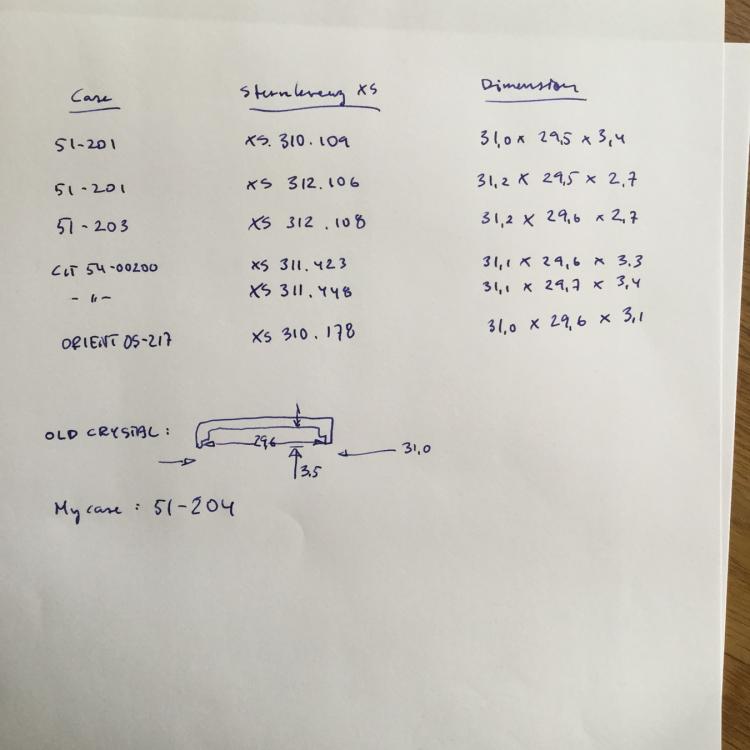 Case Sternkreuz XS Dimension
51-201 XS. 310.109 31,0 x 29,5 x 3,4
51-201 XS 312.106 31,2 x 29,5 x 2,7
51-203 XS 312.108 31,2 x 29,6 x 2,7
54-00200 XS 311.423 31,1 x 29,6 x 3.3
- " - XS 311.448 31,1 x 29,7 x 3,4
ORIENT OS-217 XS 310.178 31,0 x 29,6 x 3,1
OLD CRYSTAL: 29,6 31,0
3.5
My case: 51-204